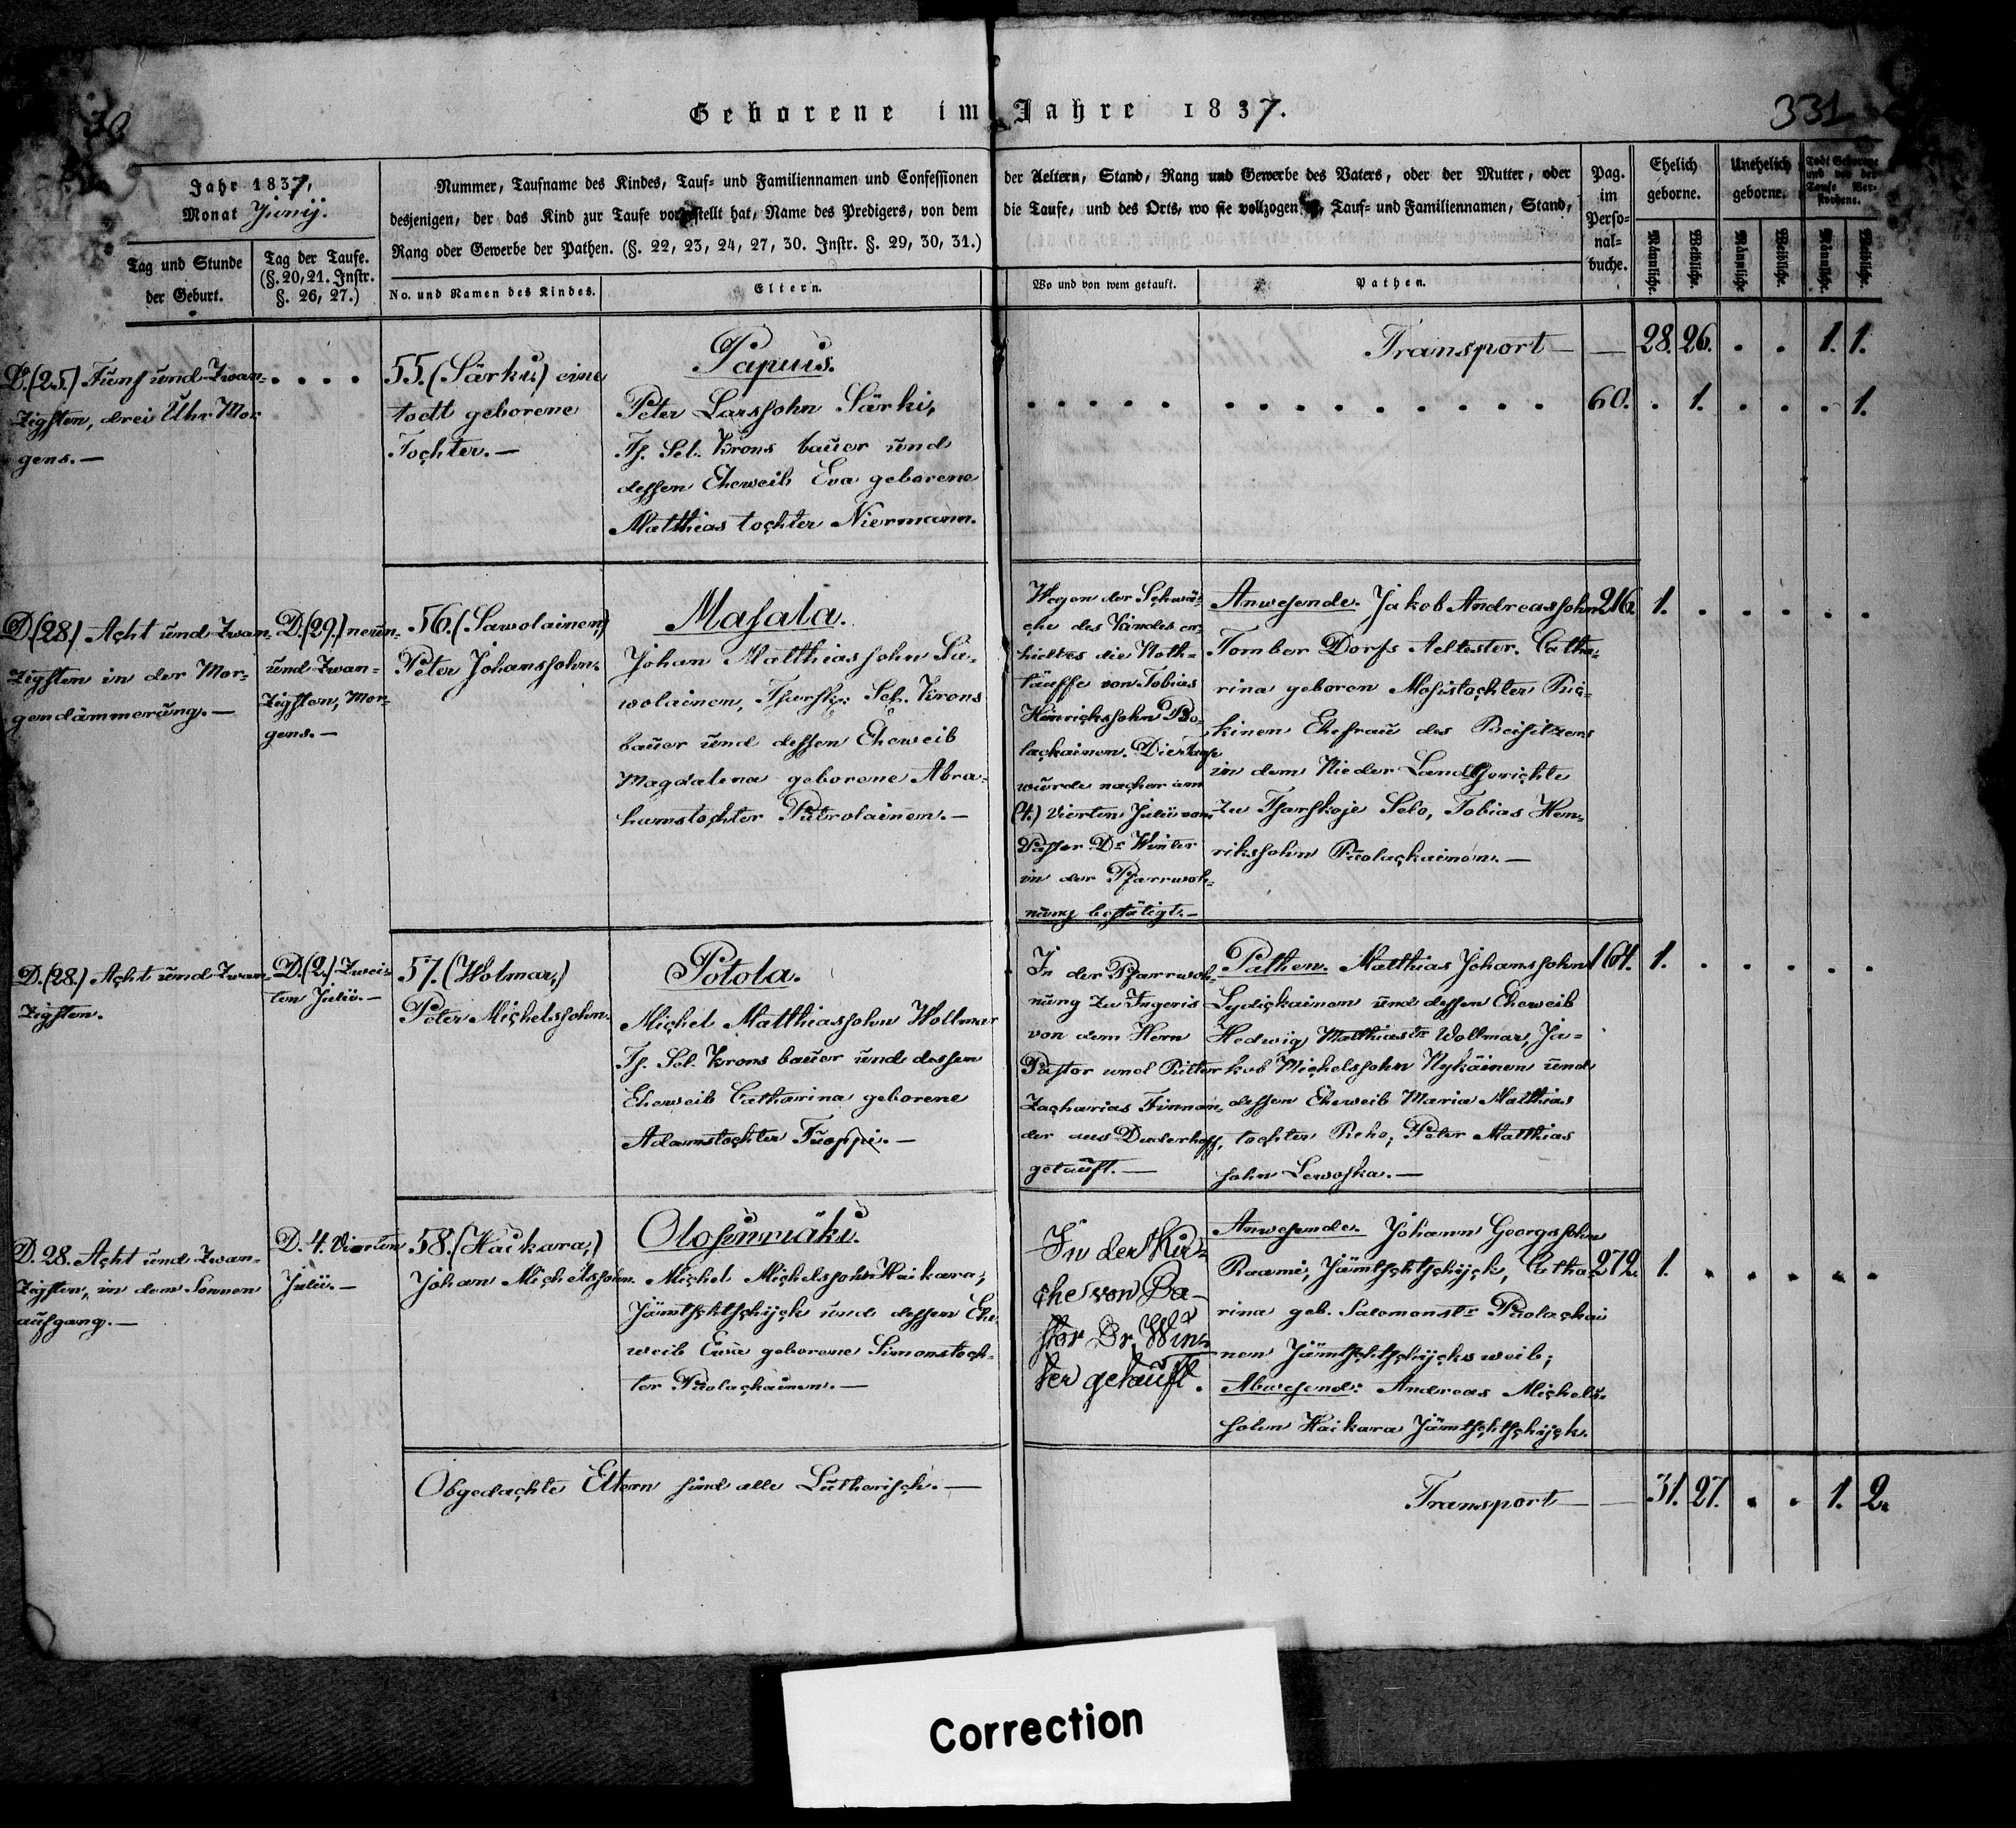 30
Geborene im Jahre 1837.
331
Jahr 1837,
Monat Junij.
Tag und Stunde
der Geburt.
Tag der Taufe.
(§. 20, 21. Instr.
§. 26, 27.)
Nummer, Taufname des Kindes, Tauf- und Familiennamen und Confessionen
desjenigen, der das Kind zur Taufe vorgestellt hat, Name des Predigers, von dem
Rang oder Gewerbe der Pathen. (§. 22, 23, 24, 27, 30. Instr. §. 29, 30, 31.)
No. und Namen des Kindes.
Eltern.
der Aeltern, Stand, Rang und Gewerbe des Vaters, oder der Mutter, oder
die Taufe, und des Orts, wo sie vollzogen, Tauf- und Familiennamen, Stand,
Wo und von wem getauft.
Pathen.
Pag.
im
Perso-
nal-
buche.
Ehelich
geborne.
Unehelich
geborne.
Todt Geborene
und vor der
Taufe Ver-
storbene.
Männliche.
Weibliche.
Männliche
Weibliche.
Männliche.
Weibliche.
Transport — — 28. 26. . . 1. 1.
D. (25.) Fünf und Zwan-
zigsten, drei Uhr Mor-
gens. —
. . . .
55. (Särki) eine
todt geborene
Tochter. —
Papuis.
Peter Larssohn Särki,
Ts. Sel. Krons bauer und
dessen Eheweib Eva geborene
Matthias tochter Niermann.
60. . 1. . . . 1.
D. (28.) Acht und Zwan-
zigsten in der Mor-
gendämmerung. —
D. (29.) neun-
und Zwan-
zigsten, Mor-
gens. —
56. (Sawolainen,)
Peter Johanssohn.
Masala.
Johan Matthiassohn Sa-
wolainen, Tsarsk. Sel. Krons
bauer und dessen Eheweib
Magdalena geborene Abra-
hamstochter Putrolainen. —
Wegen der Schwä-
che des Kindes er-
hielt es die Noth-
täuffe von Tobias
Heinrichssohn Puo-
lackainen. Die Taufe
wurde nacher am
(4.) Vierten Julii vom
Pastor Dr Winter
in der Pfarrwoh-
nung bestätigt. —
Anwesende. Jakob Andreassohn
Tomber Dorfs Aeltester. Catha-
rina geboren Mosistochter Pui-
kinen Ehefrau des Beisitzers
in dem Nieder Land Gerichte
zu Tsarskoje Selo, Tobias Hen-
rikssohn Puolackainen. —
216. 1. . . . . .
D. (28.) Acht und Zwan-
zigsten.
D. (2.) Zwei-
ten Julii. —
57. (Wolmar,)
Peter Michelssohn.
Potola.
Michel Matthiassohn Wollmar
Ts. Sel. Krons bauer und dessen
Eheweib Catharina geborene
Adamstochter Tuoppi. —
In der Pfarrwoh-
nung zu Ingeris
von dem Hern
Pastor und Ritter
Zacharias Finnan-
der aus Duderhoff,
getauft. —
Pathen. Matthias Johanssohn
Lydickainen und dessen Eheweib
Hedwig Matthiastr Wollmar, Ja-
kob Michelssohn Nykäinen und
dessen Eheweib Maria Matthias
tochter Reho, Peter Matthias
sohn Lewoska. —
164. 1. . . . . .
D. 28. Acht und Zwan-
zigsten, in dem Sonnen
aufgang. —
D. 4. Vierten
Julii. —
58. (Haikara,)
Johan Michelssohn.
Olosenmäki.
Michel Michelssohn Haikara,
Jämtschtschijck und dessen Ehe-
weib Ewa geborene Simonstoch-
ter Puolackainen. —
In der Kir-
che von Pa-
stor Dr. Win-
ter getauft.
Anwesende. Johann Georgssohn
Raami, Jämtschtschijck, Catha-
rina geb. Salomonstr Puolackai
nen Jämtschtschijcks weib;
Abwesend: Andreas Michels-
sohn Haikara Jämtschtschijck.
272. 1. . . . . .
Obgedachte Eltern sind alle Lutherisch. —
Transport — — 31. 27. . . 1. 2.
Correction